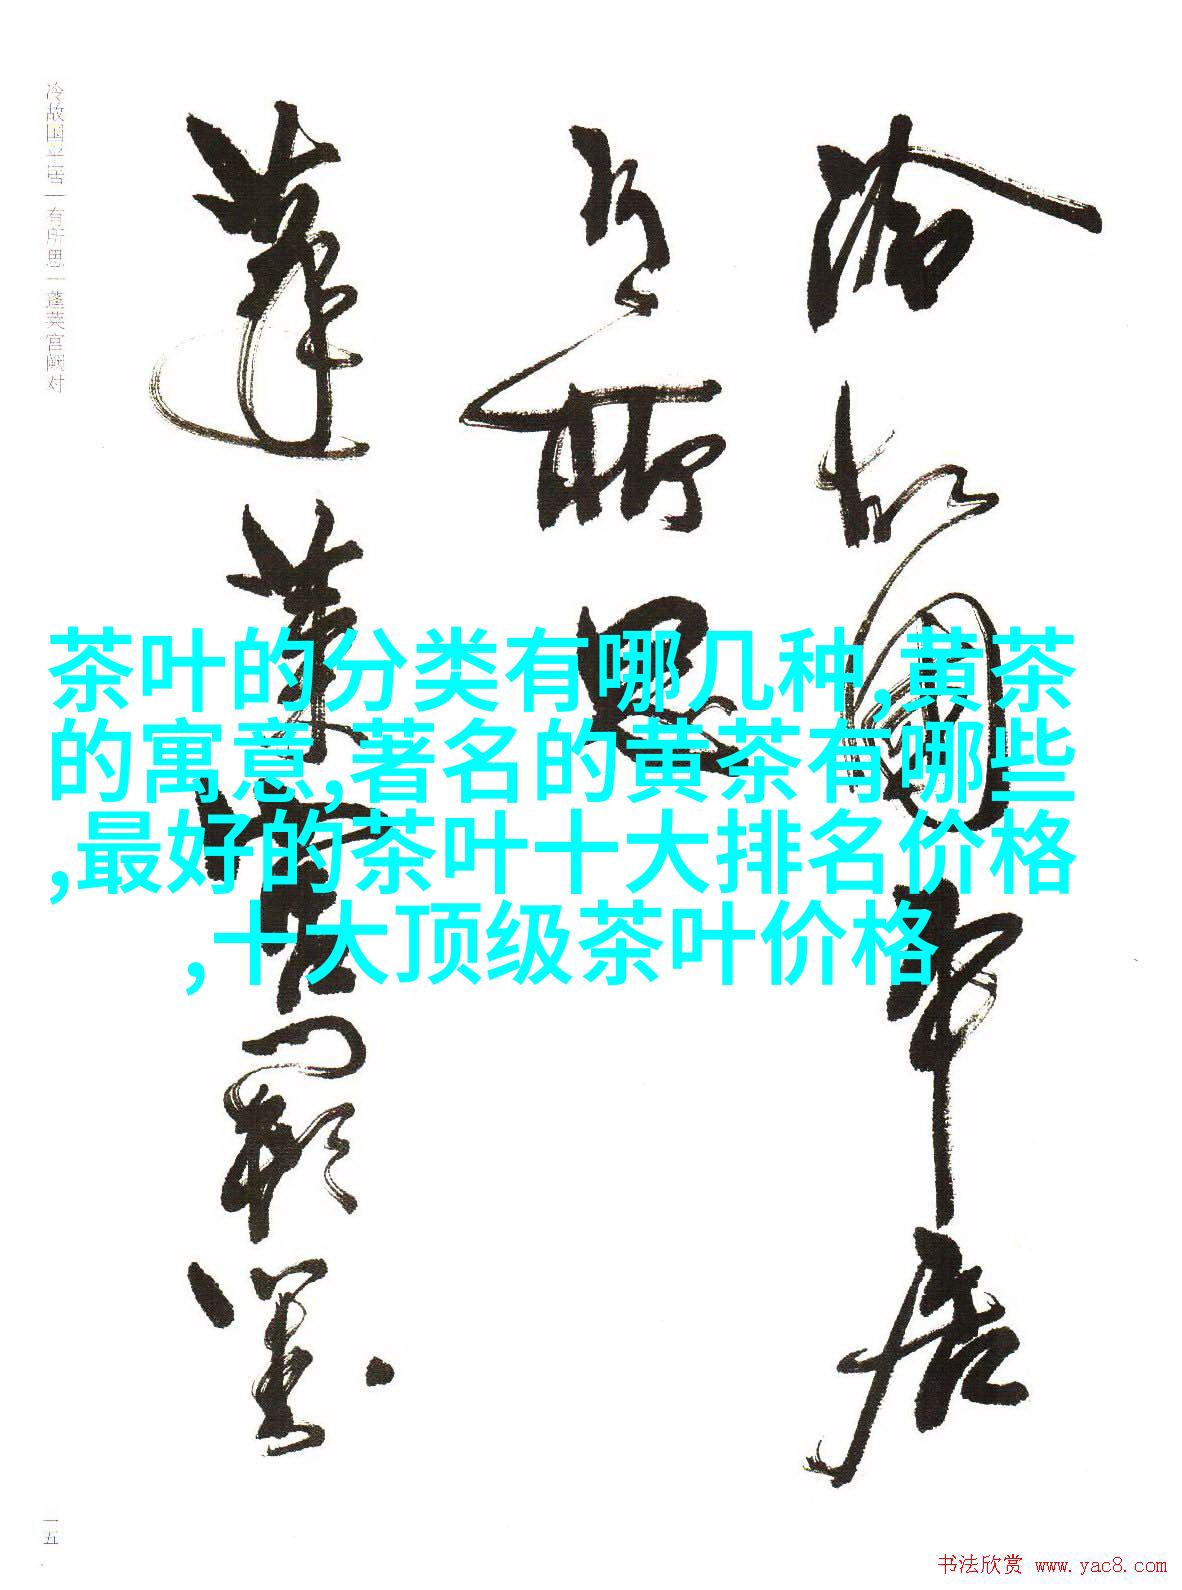 冷故國平居
有所思
蓬萊宮闕對
冷故国平居|有所思|蓬莱宫阙对
茶叶的分类有哪几种,黄茶
的寓意,著名的黄茶有哪些
,最好的茶叶十大排名价格
,十大顶级茶叶价格
一五
书法欣赏 www.yac8.com